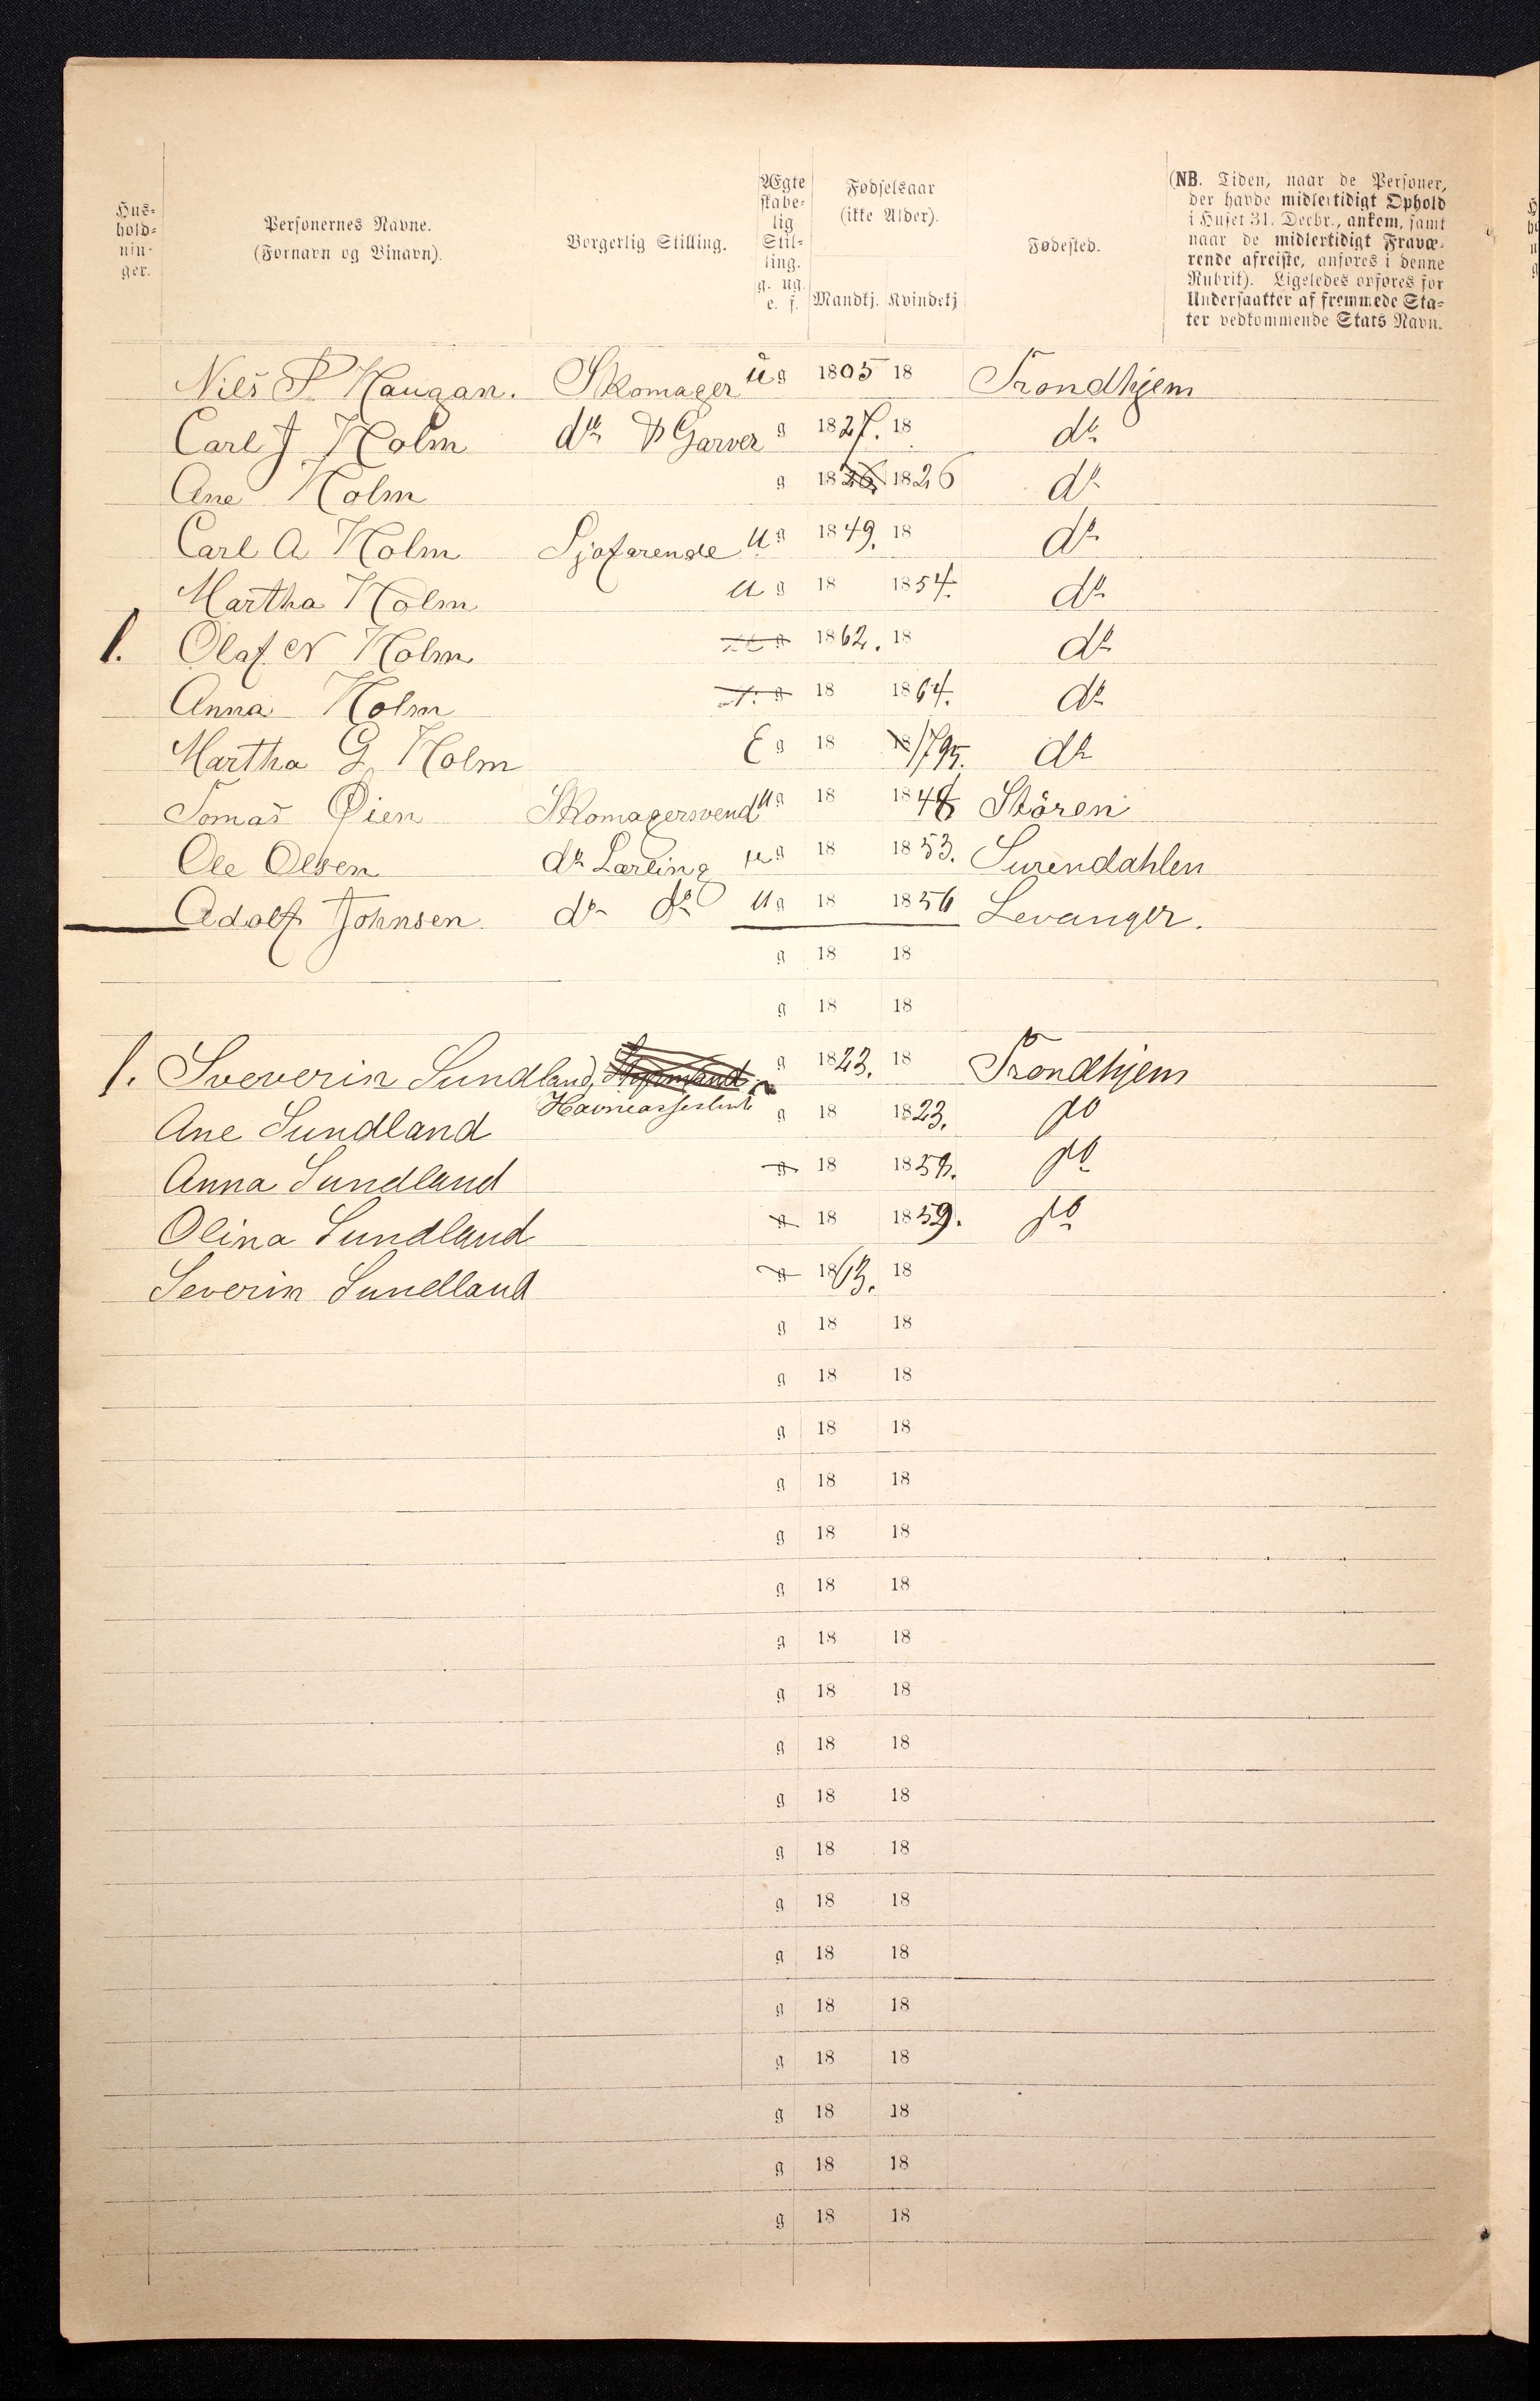 Hus-hold-nin-ger.	Personernes Navne. (Fornavn og Binavn).	Borgerlig Stilling.	Ægteskabe-lig Stil-ling. g. ug. e. f.	Fødselsaar (ikke Alder). Mandkj. Kvindekj	Fødested.	(NB. Tiden, naar de Personer, der havde midlertidigt Ophold i Huset 31. Decbr., ankom, samt naar de midlertidigt Fraværende afreiste, anføres i denne Rubrik). Ligeledes opføres for Undersaatter af fremmede Stater vedkommende Stats Navn.
Niels P Haugan. Skomager ug 1805 18 Trondhjem
Carl J Holm do & Garver g 1827. 18 do
Ane Holm g 1826 1826 do
Carl A Holm Sjøfarende ug 1849. 18 do
Martha Holm ug 18 1854. do
1. Olaf N Holm g 1862. 18 do
Anna Holm g 18 1864. do
Martha G Holm E g 18 18 1795. do
Tomas Øien Skomagersvend ug 18 1848 Stören
Ole Olsen do Lærling ug 18 1853. Surendahlen
Adolf Johnsen do do ug 18 1856 Levanger.
g 18 18
g 18 18
1. Sveverin Sundland, Styrmand g 1823. 18 Trondhjem
Havneassistent
Ane Sundland g 18 1823. do
Anna Sundland g 18 18 do
Olina Sundland g 18 1859. do
Severin Sundland g 1863. 18
g 18 18
g 18 18
g 18 18
g 18 18
g 18 18
g 18 18
g 18 18
g 18 18
g 18 18
g 18 18
g 18 18
g 18 18
g 18 18
g 18 18
g 18 18
g 18 18
g 18 18
g 18 18